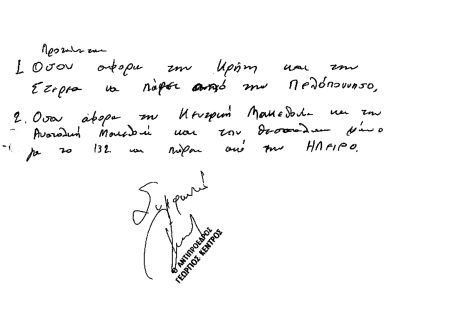 Προτείνεται
1. Όσον αφορα την Κρήτη και την
Στερεα να πάρει από την Πελόπουνησο,
2. Όσον αφορα τη Κεντρική Μακεδονία και την
Ανατολική Μακεδονία και την Θεσσαλια μόνο
με το 132 και πάρει από την ΗΠΕΙΡΟ.
Ο ΑΝΤΙΠΡΟΕΔΡΟΣ
ΓΕΩΡΓΙΟΣ ΚΕΝΤΡΟΣ